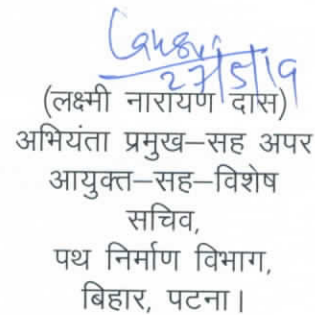 27/5/19
(लक्ष्मी नारायण दास)
अभियंता प्रमुख–सह अपर
आयुक्त–सह–विशेष
सचिव,
पथ निर्माण विभाग,
बिहार, पटना।